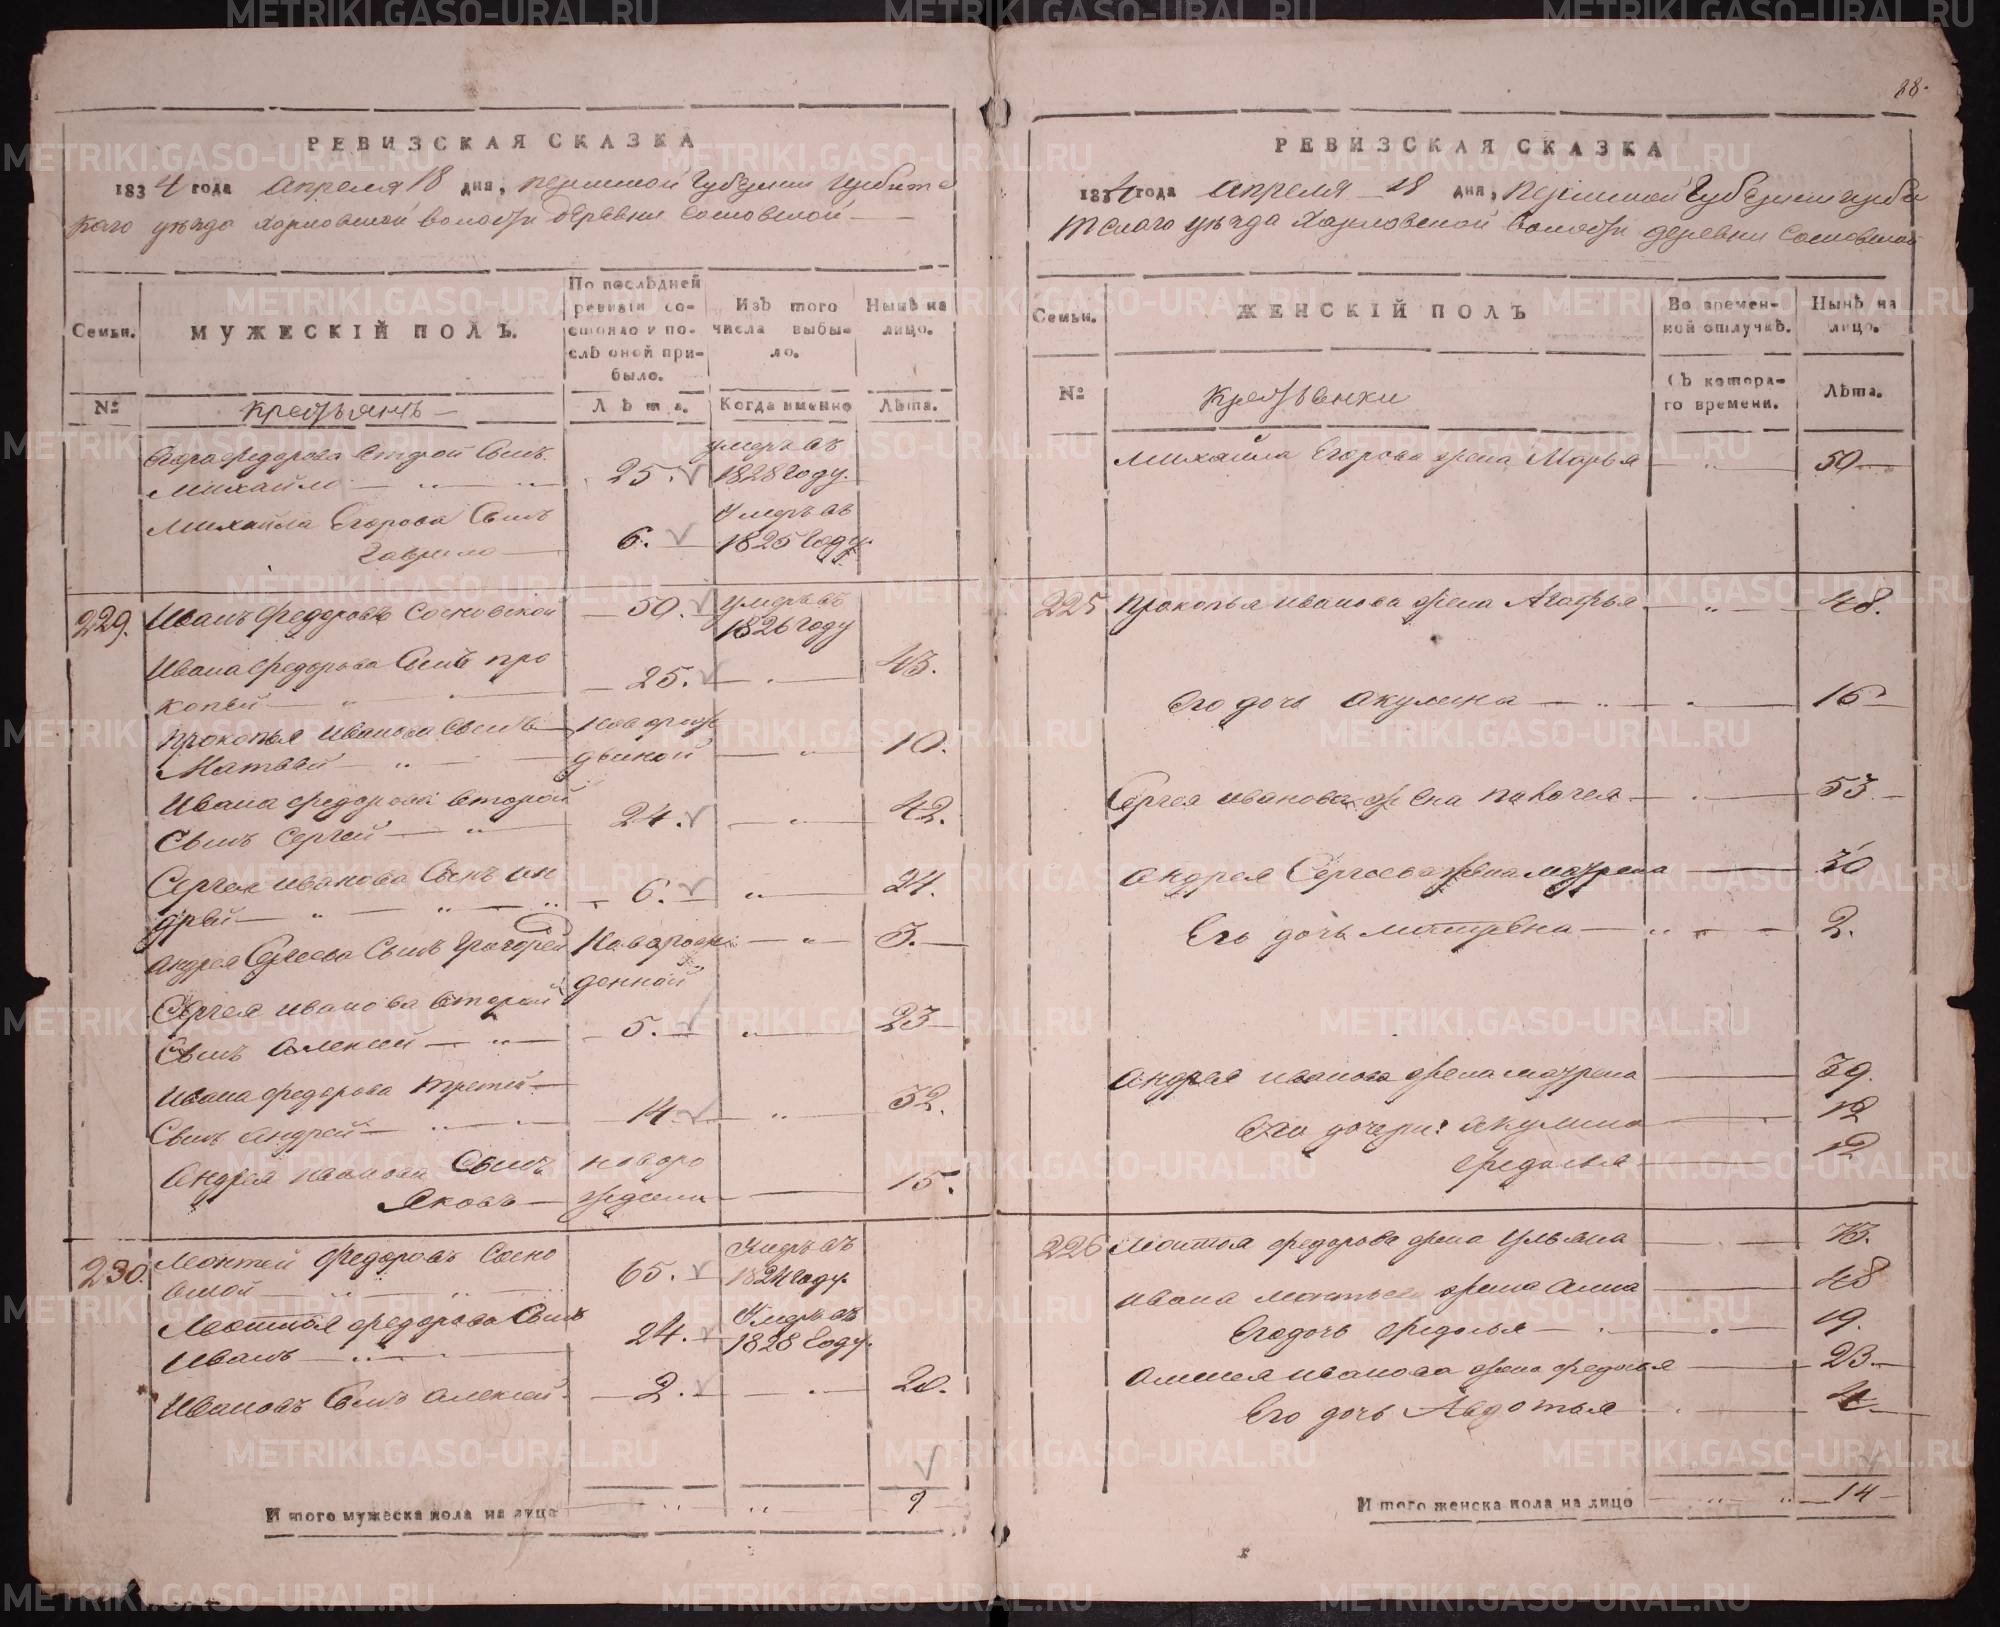 28.
РЕВИЗСКАЯ СКАЗКА
1834 года апреля 18 дня, пермской губернии ирбитс
каго уезда харловской волости деревни сосновской
Семьи.
МУЖЕСКІЙ ПОЛЪ.
По послѣдней ревизіи состояло и послѣ оной прибыло.
Изъ того числа выбыло.
Нынѣ на лицо.
№
крестьянъ
Лѣта.
Когда именно
Лѣта.
Егора федорова второй сынъ
Михайло 25. умеръ въ 1828 году.
Михайла Егорова сынъ
Гаврило 6. умеръ въ 1825 году.
229. Иванъ федоровъ Сосновской 50. умеръ въ 1826 году
Ивана федорова сынъ про
копей 25. 43.
Прокопья иванова сынъ новорож
Матвей денной 10.
Ивана федорова второй
сынъ Сергей 24. 42.
Сергея иванова сынъ ан
дрей 6. 24.
андрея Сергеева сынъ григорей новорож
денной 3.
Сергея иванова второй
сынъ алексей 5. 23
Ивана федорова третей
сынъ андрей 14 32.
андрея иванова сынъ новоро
Яковъ жденной 15.
230. Леонтей федоровъ Сосно
вской 65. умеръ въ 1824 году.
Леонтья федорова сынъ
Иванъ 24. умеръ въ 1828 году.
Ивановъ сынъ алексей 2. 20.
И того мужеска пола на лицо 9
РЕВИЗСКАЯ СКАЗКА
1834 года апреля 18 дня, пермской губернии ирби
тскаго уезда харловской волости деревни сосновской
Семьи.
ЖЕНСКІЙ ПОЛЪ
Во временной отлучкѣ.
Нынѣ на лицо.
№
крестьянки
Съ котораго времени.
Лѣта.
Михайла Егорова жена Марья 50
225 Прокопья иванова жена Агафья 48.
Его дочь акулина 16
Сергея иванова жена 53
андрея Сергеева жена матрена 30
Его дочь матрена 2.
андрея иванова жена матрена 39.
Его дочери: акулина 12
федосья 12
226 Леонтья федорова жена ульяна 73.
ивана леонтьева жена анна 48
Его дочь федосья 19.
алексея иванова жена федосья 23.
Его дочь Авдотья 4
И того женска пола на лицо 14
METRIKI.GASO-URAL.RU